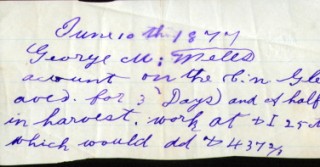 June 10th 1877
George M: Mells
acount on the
for 3 Days) and a half
in harvest, work at $1 25
which would dd $ 4 37½